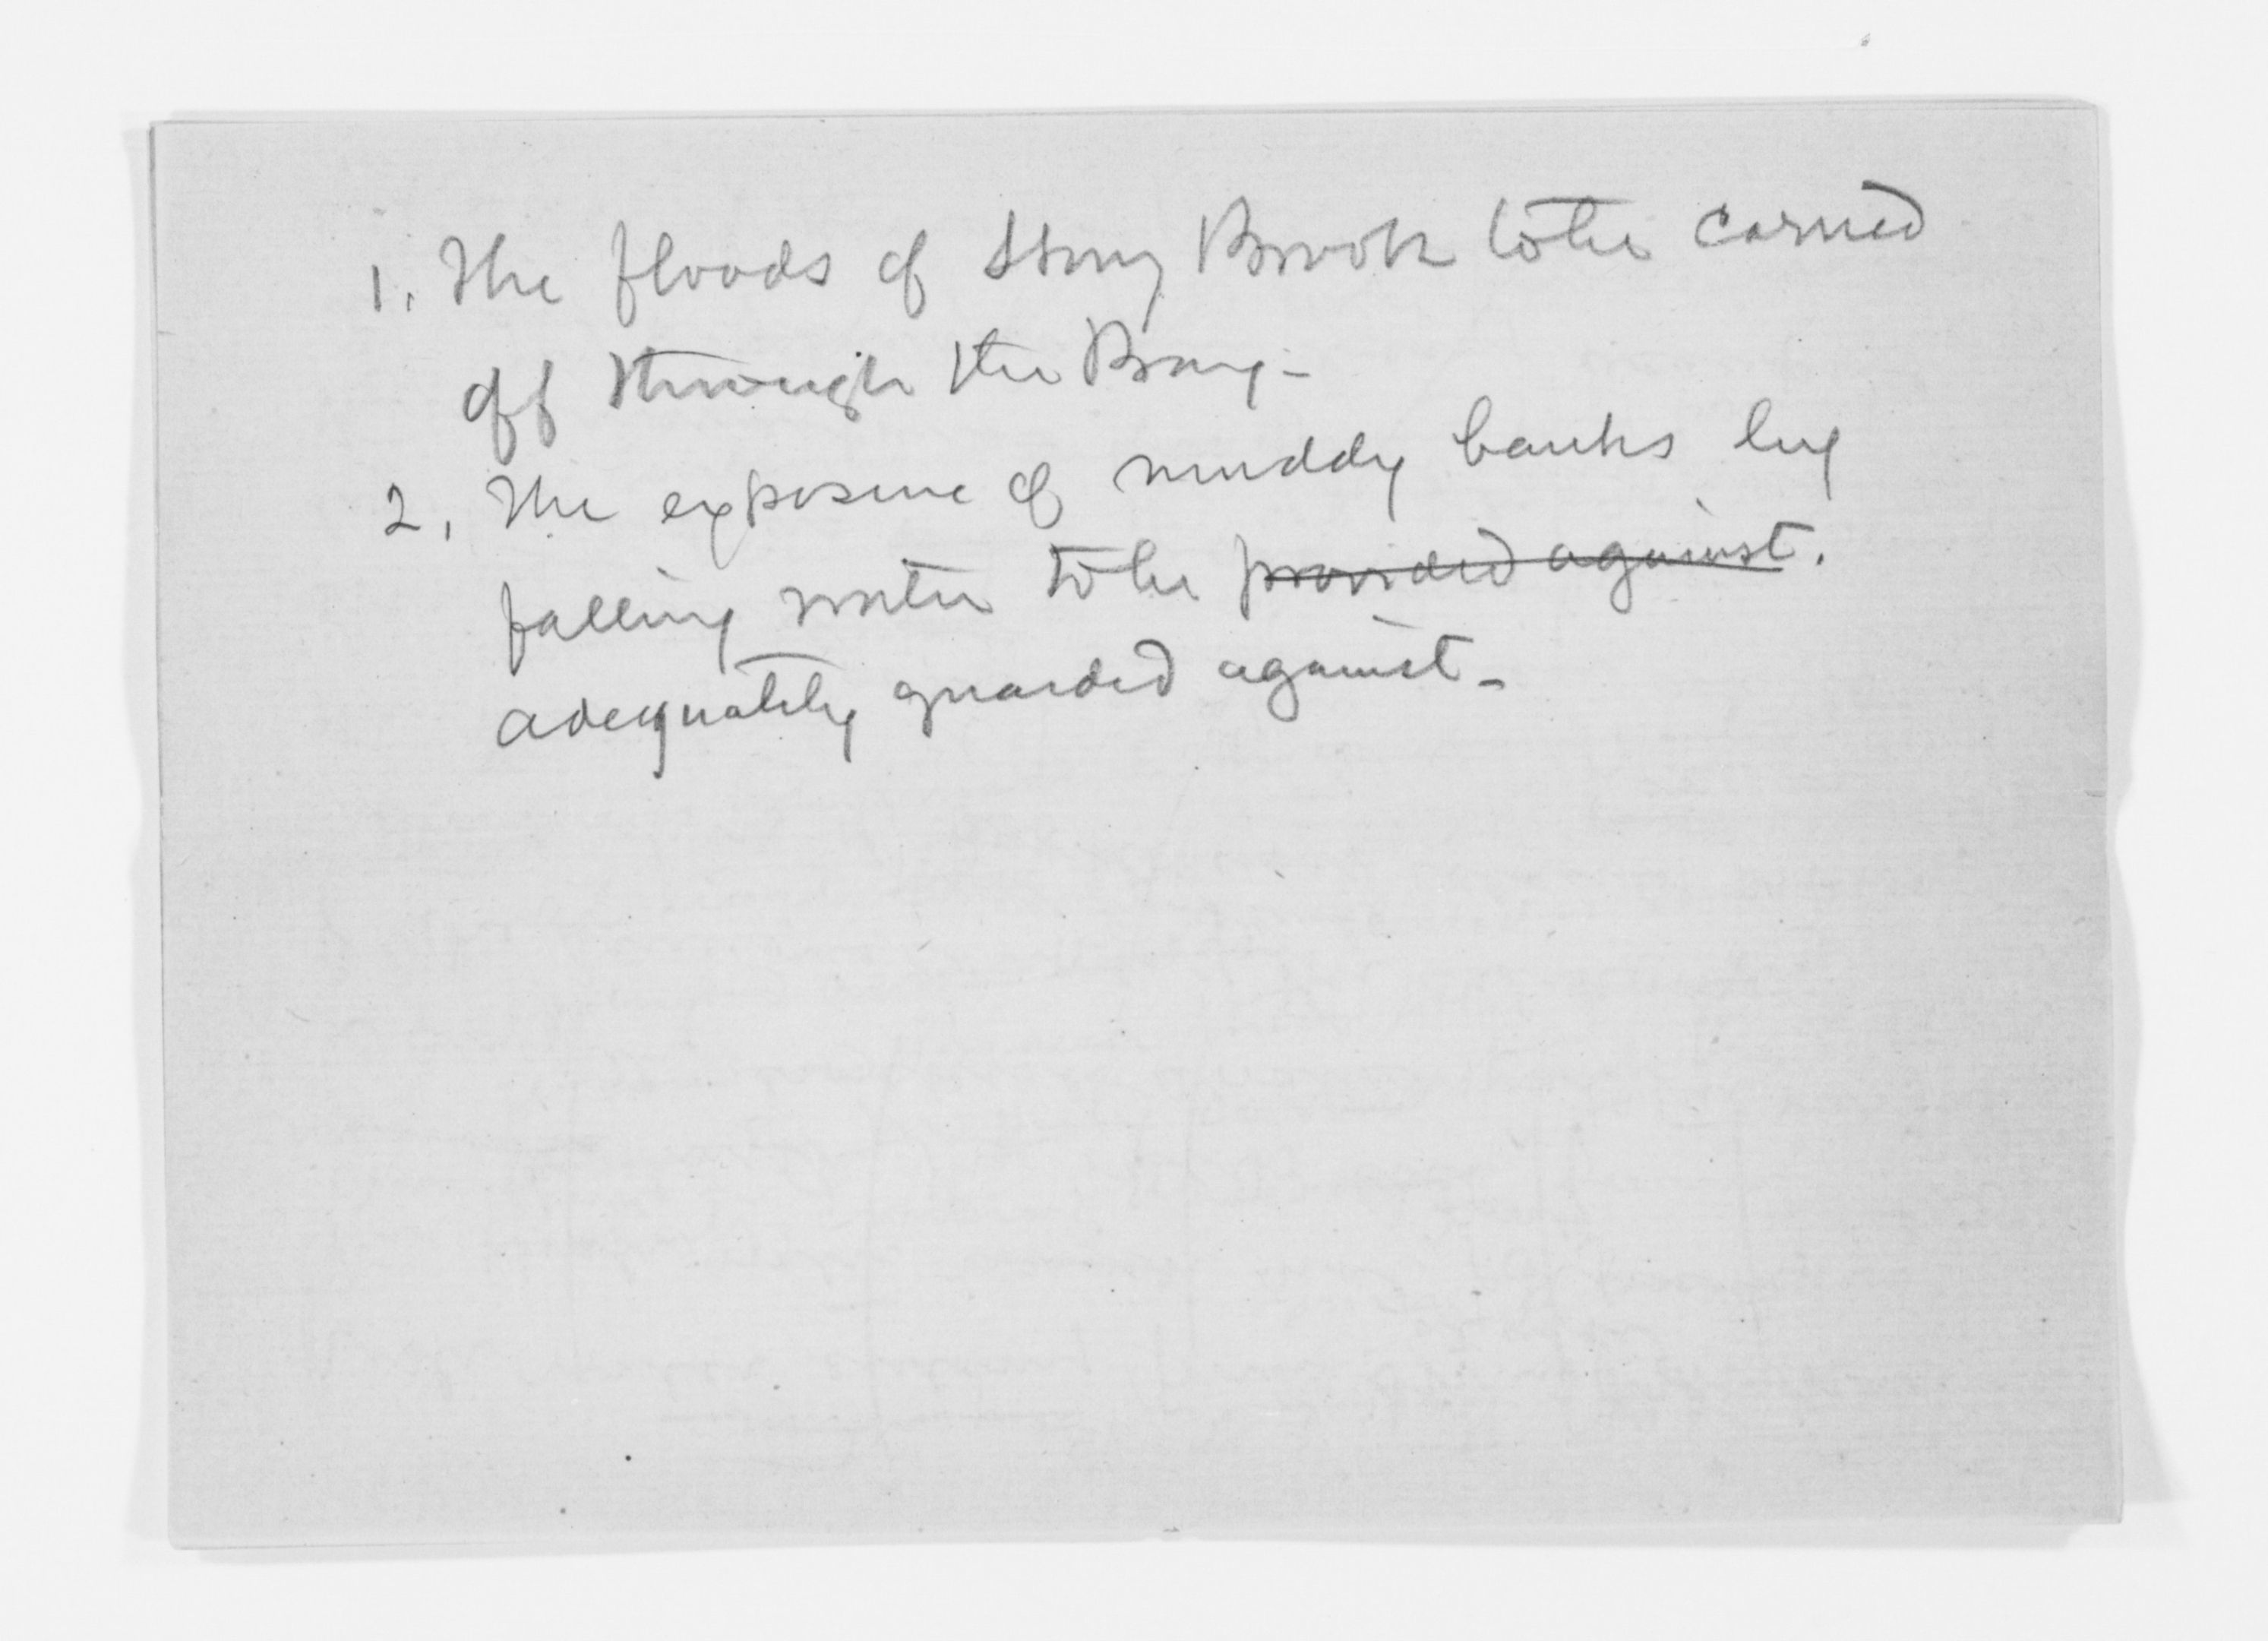 1. The floods of Stony Brook to be carried
off through the Bay-
2. The exposure of muddy banks by
falling water to be provided against.
adequately guarded against-